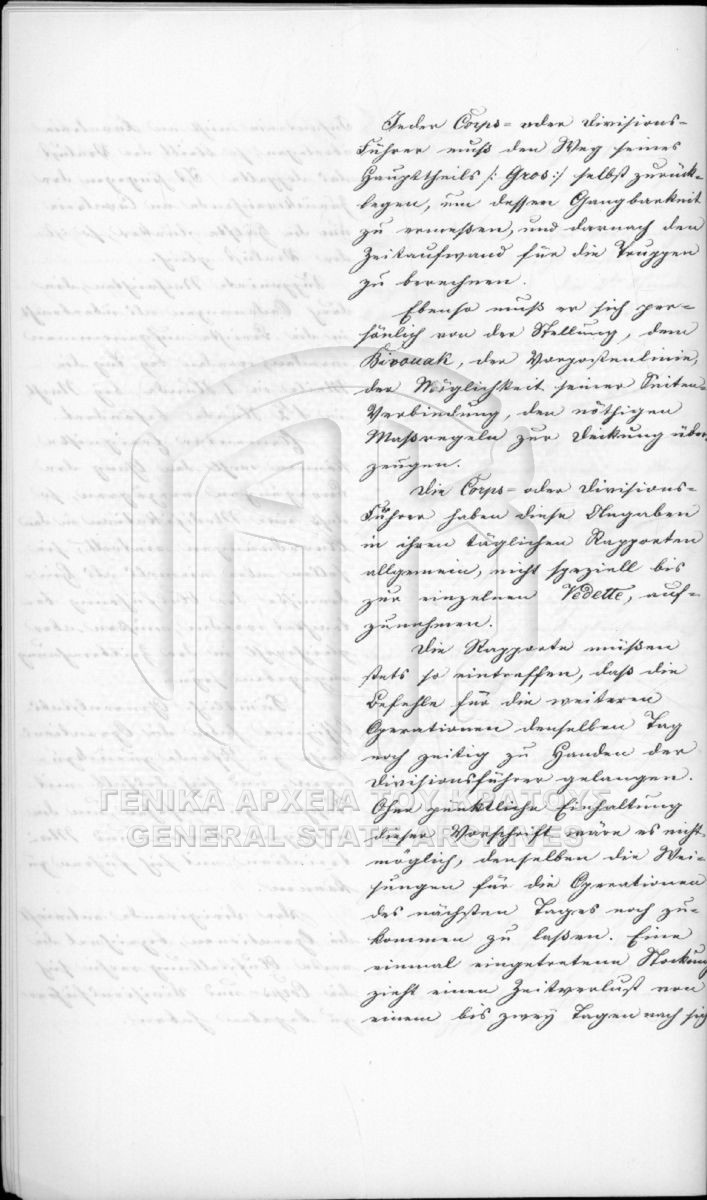 Jeder Corps= oder Divisions-
Führer muß den Weg seines
Haupttheils /: Gros :/ selbst zurück-
legen, um dessen Gangbarkeit
zu ermeßen, und darnach den
Zeitaufwand für die Truppen
zu berechnen.
Ebenso muß er sich per-
sönlich von der Stellung, dem
Bivouak, der Vorpostenlinie,
der Möglichkeit seiner Seiten-
Verbindung, den nöthigen
Maßregeln zur Deckung über-
zeugen.
Die Corps= oder Divisions-
Führer haben diese Angaben
in ihren täglichen Rapporten
allgemein, nicht speziell bis
zur einzelnen Vedette, auf-
zunehmen.
Die Rapporte müßen
stets so eintreffen, daß die
Befehle für die weiteren
Operationen denselben Tag
noch zeitig zu Handen der
Divisionsführer gelangen.
ΓΕΝΙΚΑ ΑΡΧΕΙΑ ΤΟΥ ΚΡΑΤΟΥΣ
Ohne pünktliche Einhaltung
dieser Vorschrift wäre es nicht
GENERAL STATE ARCHIVES
möglich, denselben die Wei-
sungen für die Operationen
des nächsten Tages noch zu-
kommen zu laßen. Eine
einmal eingetretene Stockung
zieht einen Zeitverlust von
einem bis zwey Tagen nach sich